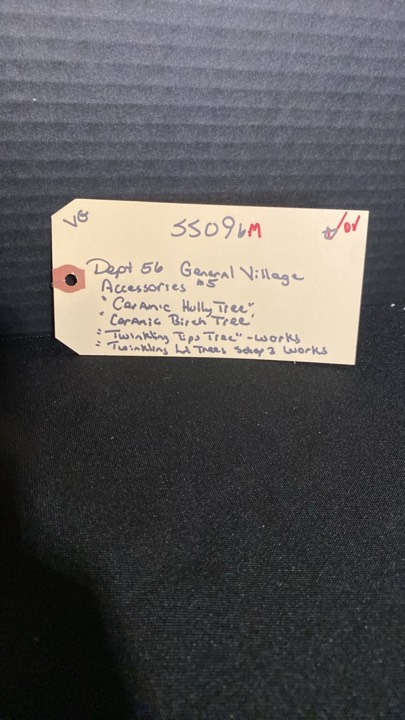 VG
55096M
DV
Dept 56 General Village
Accessories #5
"Ceramic Holly Tree"
"Ceramic Birch Tree"
"Twinkling Tips Tree" - works
"Twinkling Lit Trees Set of 3 works